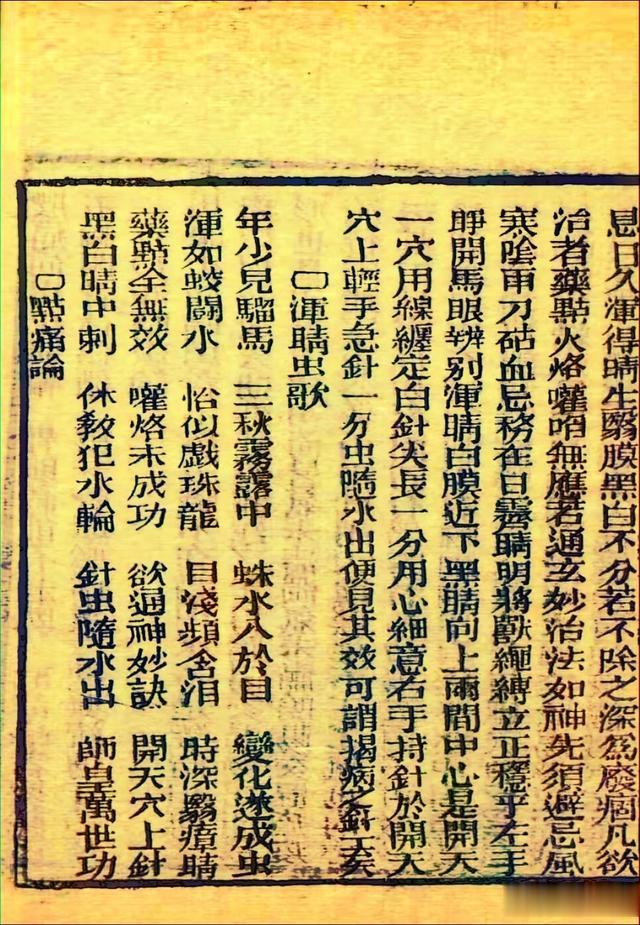 息日久渾得睛生翳膜黑白不分若不除之深為廢痼凡欲
治者藥點火烙嚾啗無應若通玄妙治法如神先須避忌風
寒陰雨刀砧血忌務在日霽晴明將獸繩縛立正穩乎左手
睜開馬眼辨别渾睛白膜近下黑睛向上兩間中心是開天
一穴用線纏定白針尖長一分用心細意右手持針於開天
穴上輕手急針一分虫隨水出便見其效可謂揭病之針玄矣
渾睛虫歌
年少兒騮馬 三秋霧露中 蛛水入於目 變化遂成虫
渾如蛟鬪水 恰似戲珠龍 目淺頻含泪 時深翳瘴睛
藥點全無效 嚾烙未成功 欲通神妙訣 開天穴上針
黑白睛中刺 休教犯水輪 針虫隨水出 師皇萬世功
點痛論